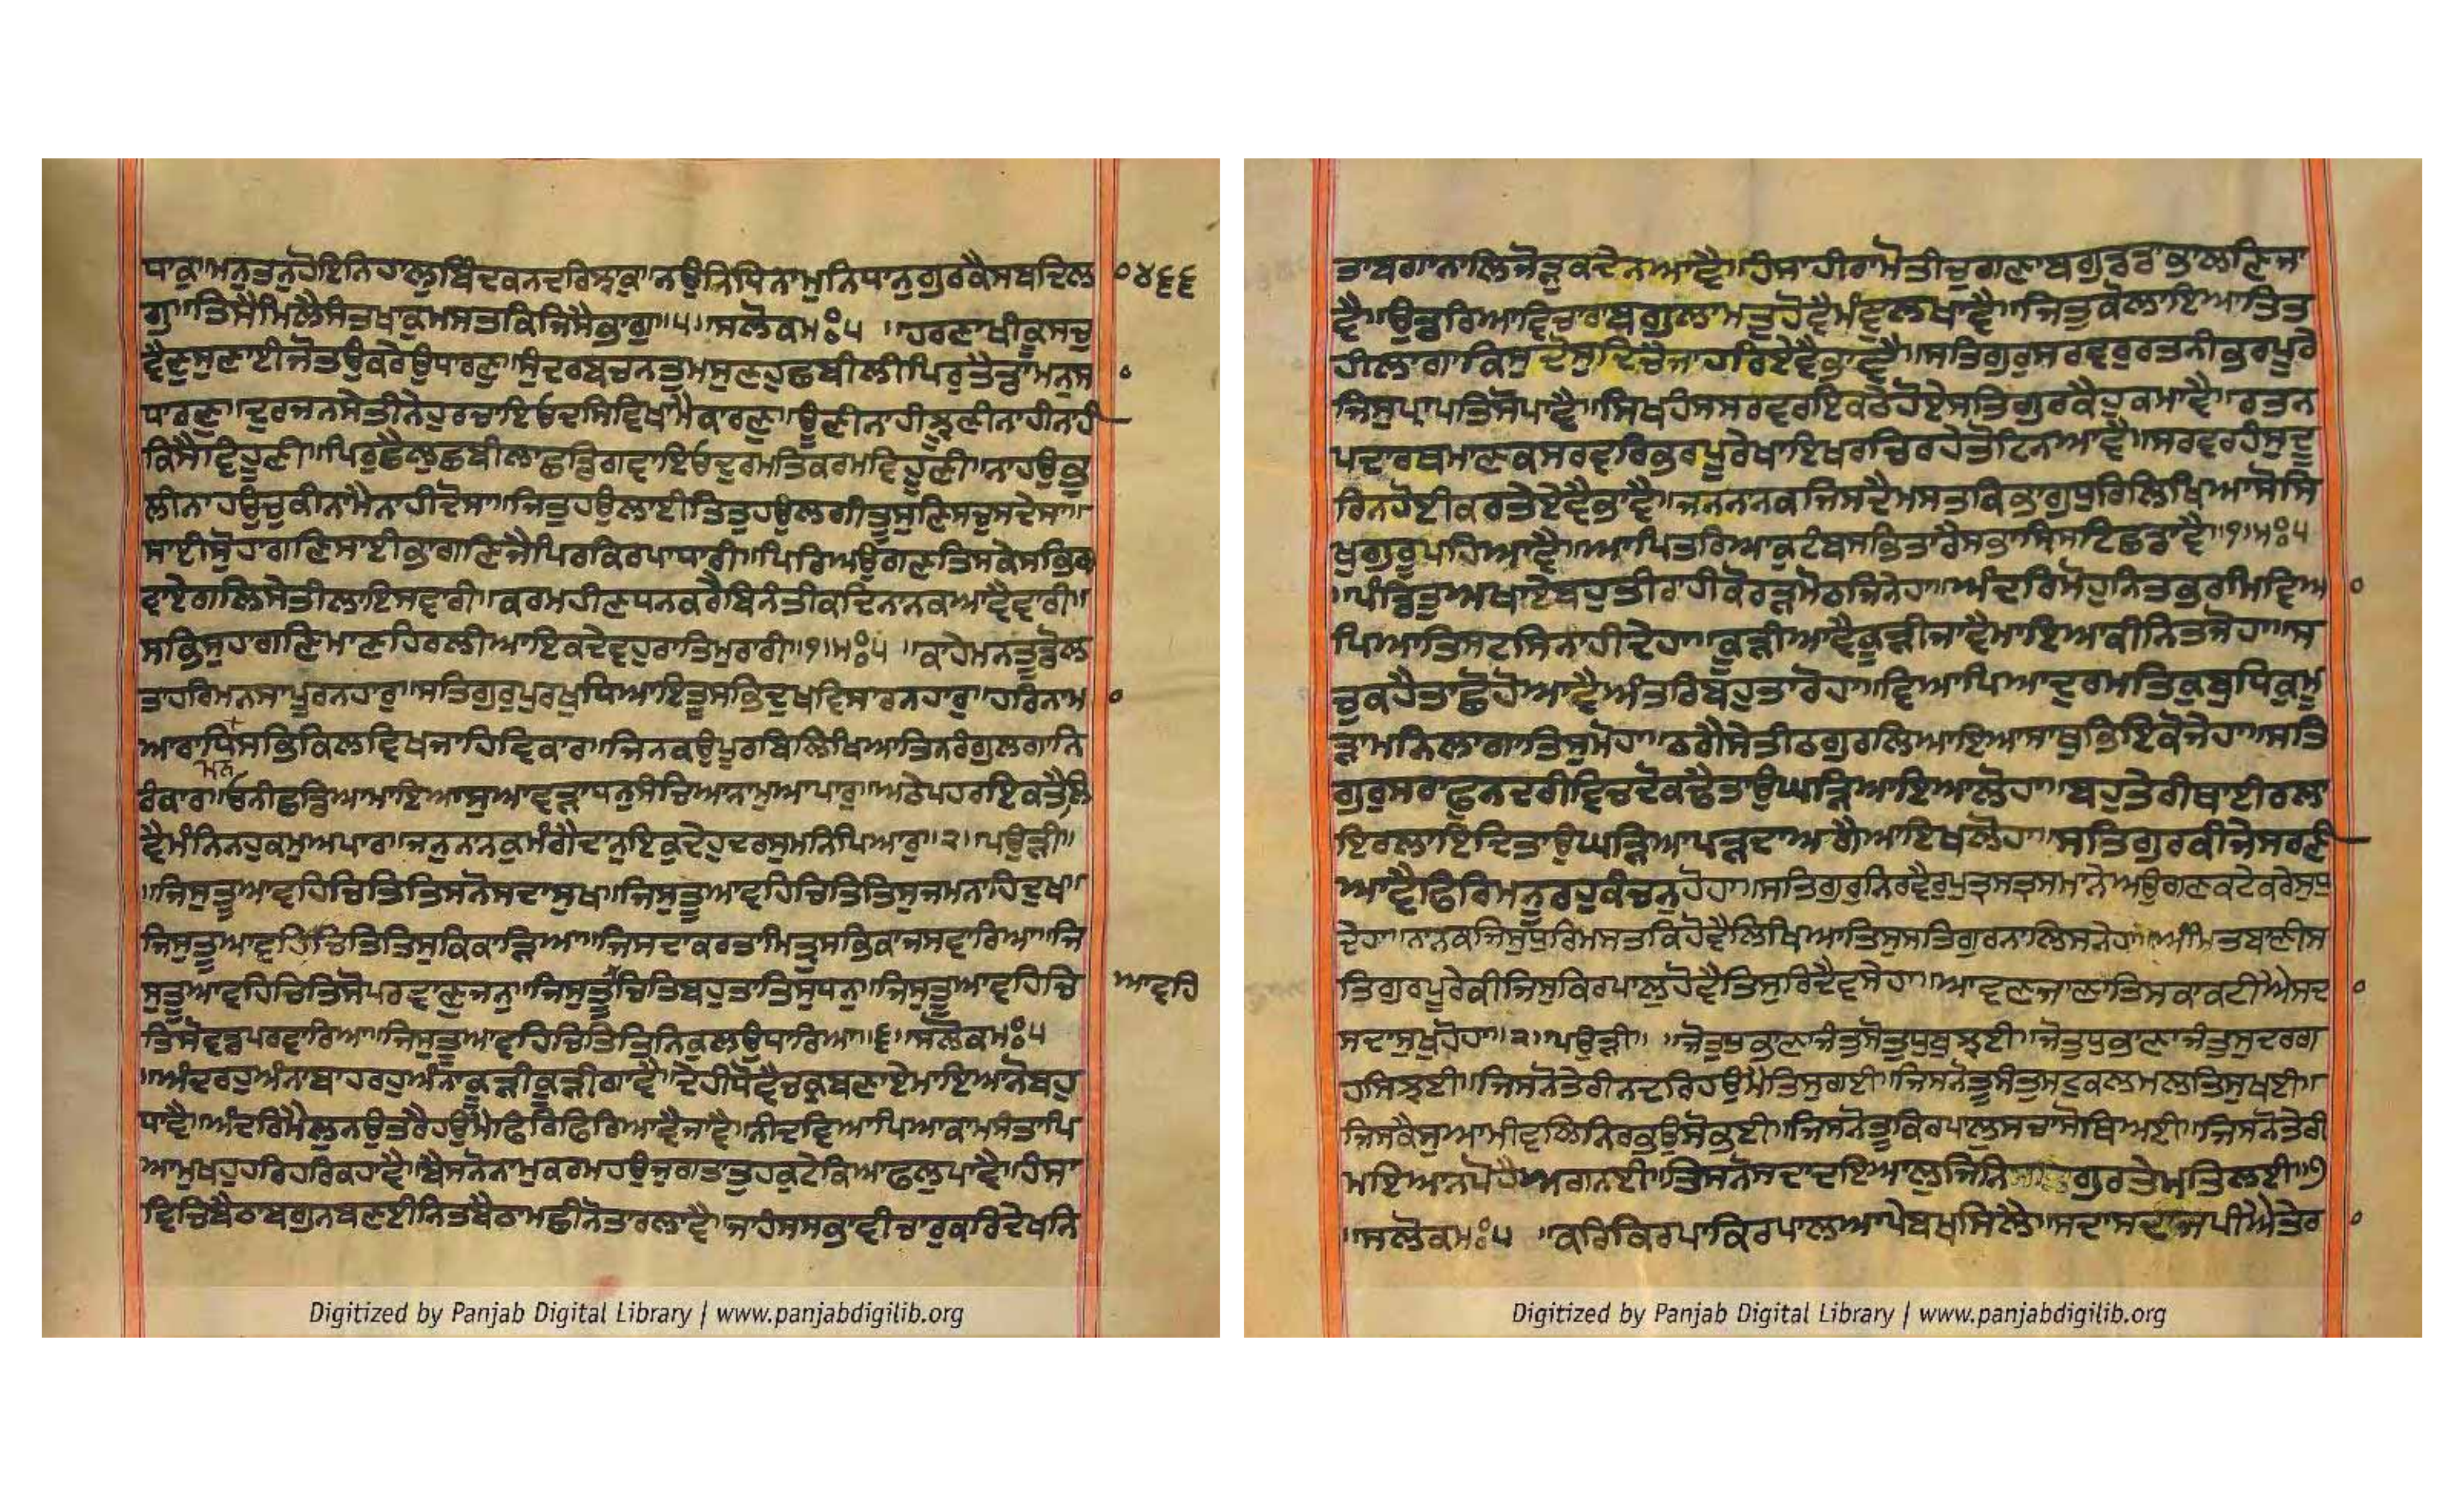 ਧਾਕਾਮਨੁਤਨੁਹੋਇਨਿਹਾਲੁਬਿੰਦਕਨਦਰਿਝਾਕਾਨਉਨਿਧਿਨਾਮੁਨਿਧਾਨੁਗੁਰਕੈਸਬਦਿਲ ੦੪੬੬
ਗਾ॥ਤਿਸੈਮਿਲੈਸੰਤਖਾਕੁਮਸਤਕਿਜਿਸੈਭਾਗਾ॥੫॥ਸਲੋਕਮਃ੫ ॥ਹਰਣਾਖੀਕੂਸਚੁ
ਵੈਣੁਸੁਣਾਈਜੋਤਉਕਰੇਉਧਾਰਣੁ॥ਸੁੰਦਰਬਚਨਤੁਮਸੁਣਹੁਛਬੀਲੀਪਿਰੁਤੈਡਾਮਨੁਸਾ
ਧਾਰਣੁ॥ਦੁਰਜਨਸੇਤੀਨੇਹੁਰਚਾਇਓਦਸਿਵਿਖਾਮੈਕਾਰਣੁ॥ਊਣੀਨਾਹੀਝੂਣੀਨਾਹੀਨਾਹੀ
ਕਿਸੈਵਿਹੂਣੀ॥ਪਿਰੁਛੈਲੁਛਬੀਲਾਛਡਿਗਵਾਇਓਦੁਰਮਤਿਕਰਮਵਿਹੂਣੀ॥ਨਾਹਉਭੁ
ਲੀਨਾਹਉਚੁਕੀਨਾਮੈਨਾਹੀਦੋਸਾ॥ਜਿਤੁਹਉਲਾਈਤਿਤੁਹਉਲਗੀਤੂਸੁਣਿਸਚੁਸੰਦੇਸਾ॥
ਸਾਈਸੋੁਹਾਗਣਿਸਾਈਭਾਗਣਿਜੈਪਿਰਕਿਰਪਾਧਾਰੀ॥ਪਿਰਿਅਉਗਣਤਿਸਕੇਸਭਿਗ
ਵਾਏਗਲਿਸੇਤੀਲਾਇਸਵਾਰੀ॥ਕਰਮਹੀਣਧਨਕਰੈਬਿਨੰਤੀਕਦਿਨਾਨਕਆਵੈਵਾਰੀ॥
ਸਭਿਸੁਹਾਗਣਿਮਾਣਹਿਰਲੀਆਇਕਦੇਵਹੁਰਾਤਿਮੁਰਾਰੀ॥੧॥ਮਃ੫ ॥ਕਾਹੇਮਨਤੂਡੋਲ
ਤਾਹਰਿਮਨਸਾਪੂਰਨਹਾਰੁ॥ਸਤਿਗੁਰੁਪੁਰਖੁਧਿਆਇਤੂਸਭਿਦੁਖਵਿਸਾਰਨਹਾਰੁ॥ਹਰਿਨਾਮ
ਆਰਾਧਿਸਭਿਕਿਲਵਿਖਜਾਹਿਵਿਕਾਰ॥ਜਿਨਕਉਪੂਰਬਿਲਿਖਿਆਤਿਨਰੰਗੁਲਗਾਨਿ
ਮਨ
ਰੰਕਾਰ॥ਓਨੀਛਡਿਆਮਾਇਆਸੁਆਵੜਾਧਨੁਸੰਚਿਆਨਾਮੁਅਪਾਰੁ॥ਅਠੇਪਹਰਇਕਤੈਲਿ
ਵੈਮੰਨਿਨਹੁਕਮੁਅਪਾਰ॥ਜਨੁਨਾਨਕੁਮੰਗੈਦਾਨੁਇਕੁਦੇਹੁਦਰਸੁਮਨਿਪਿਆਰੁ॥੨॥ਪਉੜੀ॥
॥ਜਿਸੁਤੂਆਵਹਿਚਿਤਿਤਿਸਨੋਸਦਾਸੁਖ॥ਜਿਸੁਤੂਆਵਹਿਚਿਤਿਤਿਸੁਜਮਨਾਹਿਦੁਖ॥
ਜਿਸੁਤੂਆਵਹਿਚਿਤਿਤਿਸੁਕਿਕਾੜਿਆ॥ਜਿਸਦਾਕਰਤਾਮਿਤ੍ਰੁਸਭਿਕਾਜਸਵਾਰਿਆ॥ਜਿ
ਸੁਤੂਆਵਹਿਚਿਤਿਸੋਪਰਵਾਣੁਜਨੁ॥ਜਿਸੁਤੂਚਿਤਿਬਹੁਤਾਤਿਸੁਧਨੁ॥ਜਿਸੁਤੂਆਵਹਿਚਿ ਆਵਹਿ
ਤਿਸੋਵਡਪਰਵਾਰਿਆ॥ਜਿਸੁਤੂਆਵਹਿਚਿਤਿਤਿਨਿਕੁਲਉਧਾਰਿਆ॥੬॥ਸਲੋਕਮਃ੫
॥ਅੰਦਰਹੁਅੰਨਾਬਾਹਰਹੁਅੰਨਾਕੂੜੀਕੂੜੀਗਾਵੈ॥ਦੇਹੀਧੋਵੈਚਕ੍ਰਬਣਾਏਮਾਇਆਨੋਬਹੁ
ਧਾਵੈ॥ਅੰਦਰਿਮੈਲੁਨਉਤਰੈਹਉਮੈਫਿਰਿਫਿਰਿਆਵੈਜਾਵੈ॥ਨੀਂਦਵਿਆਪਿਆਕਾਮਸੰਤਾਪਿ
ਆਮੁਖਹੁਹਰਿਹਰਿਕਹਾਵੈ॥ਬੈਸਨੋਨਾਮੁਕਰਮਹਉਜੁਗਤਾਤੁਹਕੁਟੇਕਿਆਫਲੁਪਾਵੈ॥ਹੰਸਾ
ਵਿਚਿਬੈਠਾਬਗੁਨਬਣਈਨਿਤਬੈਠਾਮਛੀਨੋਤਾਰਲਾਵੈ॥ਜਾਹੰਸਸਭਾਵੀਚਾਰੁਕਰਿਦੇਖਨਿ
Digitized by Panjab Digital Library | www.panjabdigilib.org
ਤਾਬਗਾਨਾਲਿਜੋੜੁਕਦੇਨਆਵੈ॥ਹੰਸਾਹੀਰਾਮੋਤੀਚੁਗਣਾਬਗੁਡਡਾਭਾਲਣਿਜਾ
ਵੈ॥ਉਡਰਿਆਵਿਚਾਰਾਬਗੁਲਾਮਤੁਹੋਵੈਮੰਞੁਲਖਾਵੈ॥ਜਿਤੁਕੋਲਾਇਆਤਿਤ
ਹੀਲਾਗਾਕਿਸੁਦੋਸੁਦਿਚੈਜਾਹਰਿਏਵੈਭਾਵੈ॥ਸਤਿਗੁਰੁਸਰਵਰੁਰਤਨੀਭਰਪੂਰੇ
ਜਿਸੁਪ੍ਰਾਪਤਿਸੋਪਾਵੈ॥ਸਿਖਹੰਸਸਰਵਰਇਕਠੇਹੋਏਸਤਿਗੁਰਕੈਹੁਕਮਾਵੈ॥ਰਤਨ
ਪਦਾਰਥਮਾਣਕਸਰਵਰਿਭਰਪੂਰੇਖਾਇਖਰਚਿਰਹੇਤੋਟਿਨਆਵੈ॥ਸਰਵਰਹੰਸੁਦੂ
ਰਿਨਹੋਈਕਰਤੇਏਵੈਭਾਵੈ॥ਜਨਨਾਨਕਜਿਸਦੈਮਸਤਕਿਭਾਗੁਧੁਰਿਲਿਖਿਆਸੋਸਿ
ਖੁਗੁਰੂਪਹਿਆਵੈ॥ਆਪਿਤਰਿਆਕੁਟੰਬਸਭਿਤਾਰੇਸਭਾਸ੍ਰਿਸਟਿਛਡਾਵੈ॥੧॥ਮਃ੫
॥ਪੰਡਿਤੁਆਖਾਏਬਹੁਤੀਰਾਹੀਕੋਰੜਮੋਠਜਿਨੇਹਾ॥ਅੰਦਰਿਮੋਹੁਨਿਤਭਰਮਿਵਿਆ
ਪਿਆਤਿਸਟਸਿਨਾਹੀਦੇਹਾ॥ਕੂੜੀਆਵੈਕੂੜੀਜਾਵੈਮਾਇਆਕੀਨਿਤਜੋਹਾ॥ਸ
ਚੁਕਹੈਤਾਛੋਹੋਆਵੈਅੰਤਰਿਬਹੁਤਾਰੋਹਾ॥ਵਿਆਪਿਆਦੁਰਮਤਿਕੁਬੁਧਿਕੁਮੂ
ੜਾਮਨਿਲਾਗਾਤਿਸੁਮੋਹਾ॥ਠਗੈਸੇਤੀਠਗੁਰਲਿਆਇਆਸਾਥੁਭਿਇਕੋਜੇਹਾ॥ਸਤਿ
ਗੁਰੁਸਰਾਫੁਨਦਰੀਵਿਚਦੋਕਢੈਤਾਂਉਘੜਿਆਇਆਲੋਹਾ॥ਬਹੁਤੇਰੀਥਾਈਰਲਾ
ਇਰਲਾਇਦਿਤਾਉਘੜਿਆਪੜਦਾਅਗੈਆਇਖਲੋਹਾ॥ਸਤਿਗੁਰਕੀਜੇਸਰਣੀ
ਆਵੈਫਿਰਿਮਨੂਰਹੁਕੰਚਨੁਹੋਹਾ॥ਸਤਿਗੁਰੁਨਿਰਵੈਰੁਪੁਤ੍ਰਸਤ੍ਰਸਮਾਨੇਅਉਗਣਕਟੇਕਰੇਸੁਧੁ
ਦੇਹਾ॥ਨਾਨਕਜਿਸੁਧੁਰਿਮਸਤਕਿਹੋਵੈਲਿਖਿਆਤਿਸੁਸਤਿਗੁਰਨਾਲਿਸਨੇਹਾ॥ਅੰਮ੍ਰਿਤਬਾਣੀਸ
ਤਿਗੁਰਪੂਰੇਕੀਜਿਸੁਕਿਰਪਾਲੁਹੋਵੈਤਿਸੁਰਿਦੈਵਸੇਹਾ॥ਆਵਣਜਾਣਾਤਿਸਕਾਕਟੀਐਸਦ
ਸਦਾਸੁਖੁਹੋਹਾ॥੨॥ਪਉੜੀ॥ ॥ਜੋਤੁਧੁਭਾਣਾਜੰਤੁਸੋਤੁਧੁਬੁਝਈ॥ਜੋਤੁਧੁਭਾਣਾਜੰਤੁਸੁਦਰਗ
ਹਸਿਝਈ॥ਜਿਸਨੋਤੇਰੀਨਦਰਿਹਉਮੈਤਿਸੁਗਈ॥ਜਿਸਨੋਤੂਸੰਤੁਸਟੁਕਲਮਲਤਿਸੁਖਈ॥
ਜਿਸਕੈਸੁਆਮੀਵਲਿਨਿਰਭਉਸੋਭਈ॥ਜਿਸਨੋਤੂਕਿਰਪਾਲੁਸਚਾਸੋਥਿਅਈ॥ਜਿਸਨੋਤੇਰੀ
ਮਇਆਨਪੋਹੈਅਗਨਈ॥ਤਿਸਨੋਸਦਾਦਇਆਲੁਜਿਨਿਗੁਰਤੇਮਤਿਲਈ॥੭
॥ਸਲੋਕਮਃ੫ ॥ਕਰਿਕਿਰਪਾਕਿਰਪਾਲਆਪੇਬਖਸਿਲੈ॥ਸਦਾਸਦਾਜਪੀਐਤੇਰਾ
Digitized by Panjab Digital Library | www.panjabdigilib.org